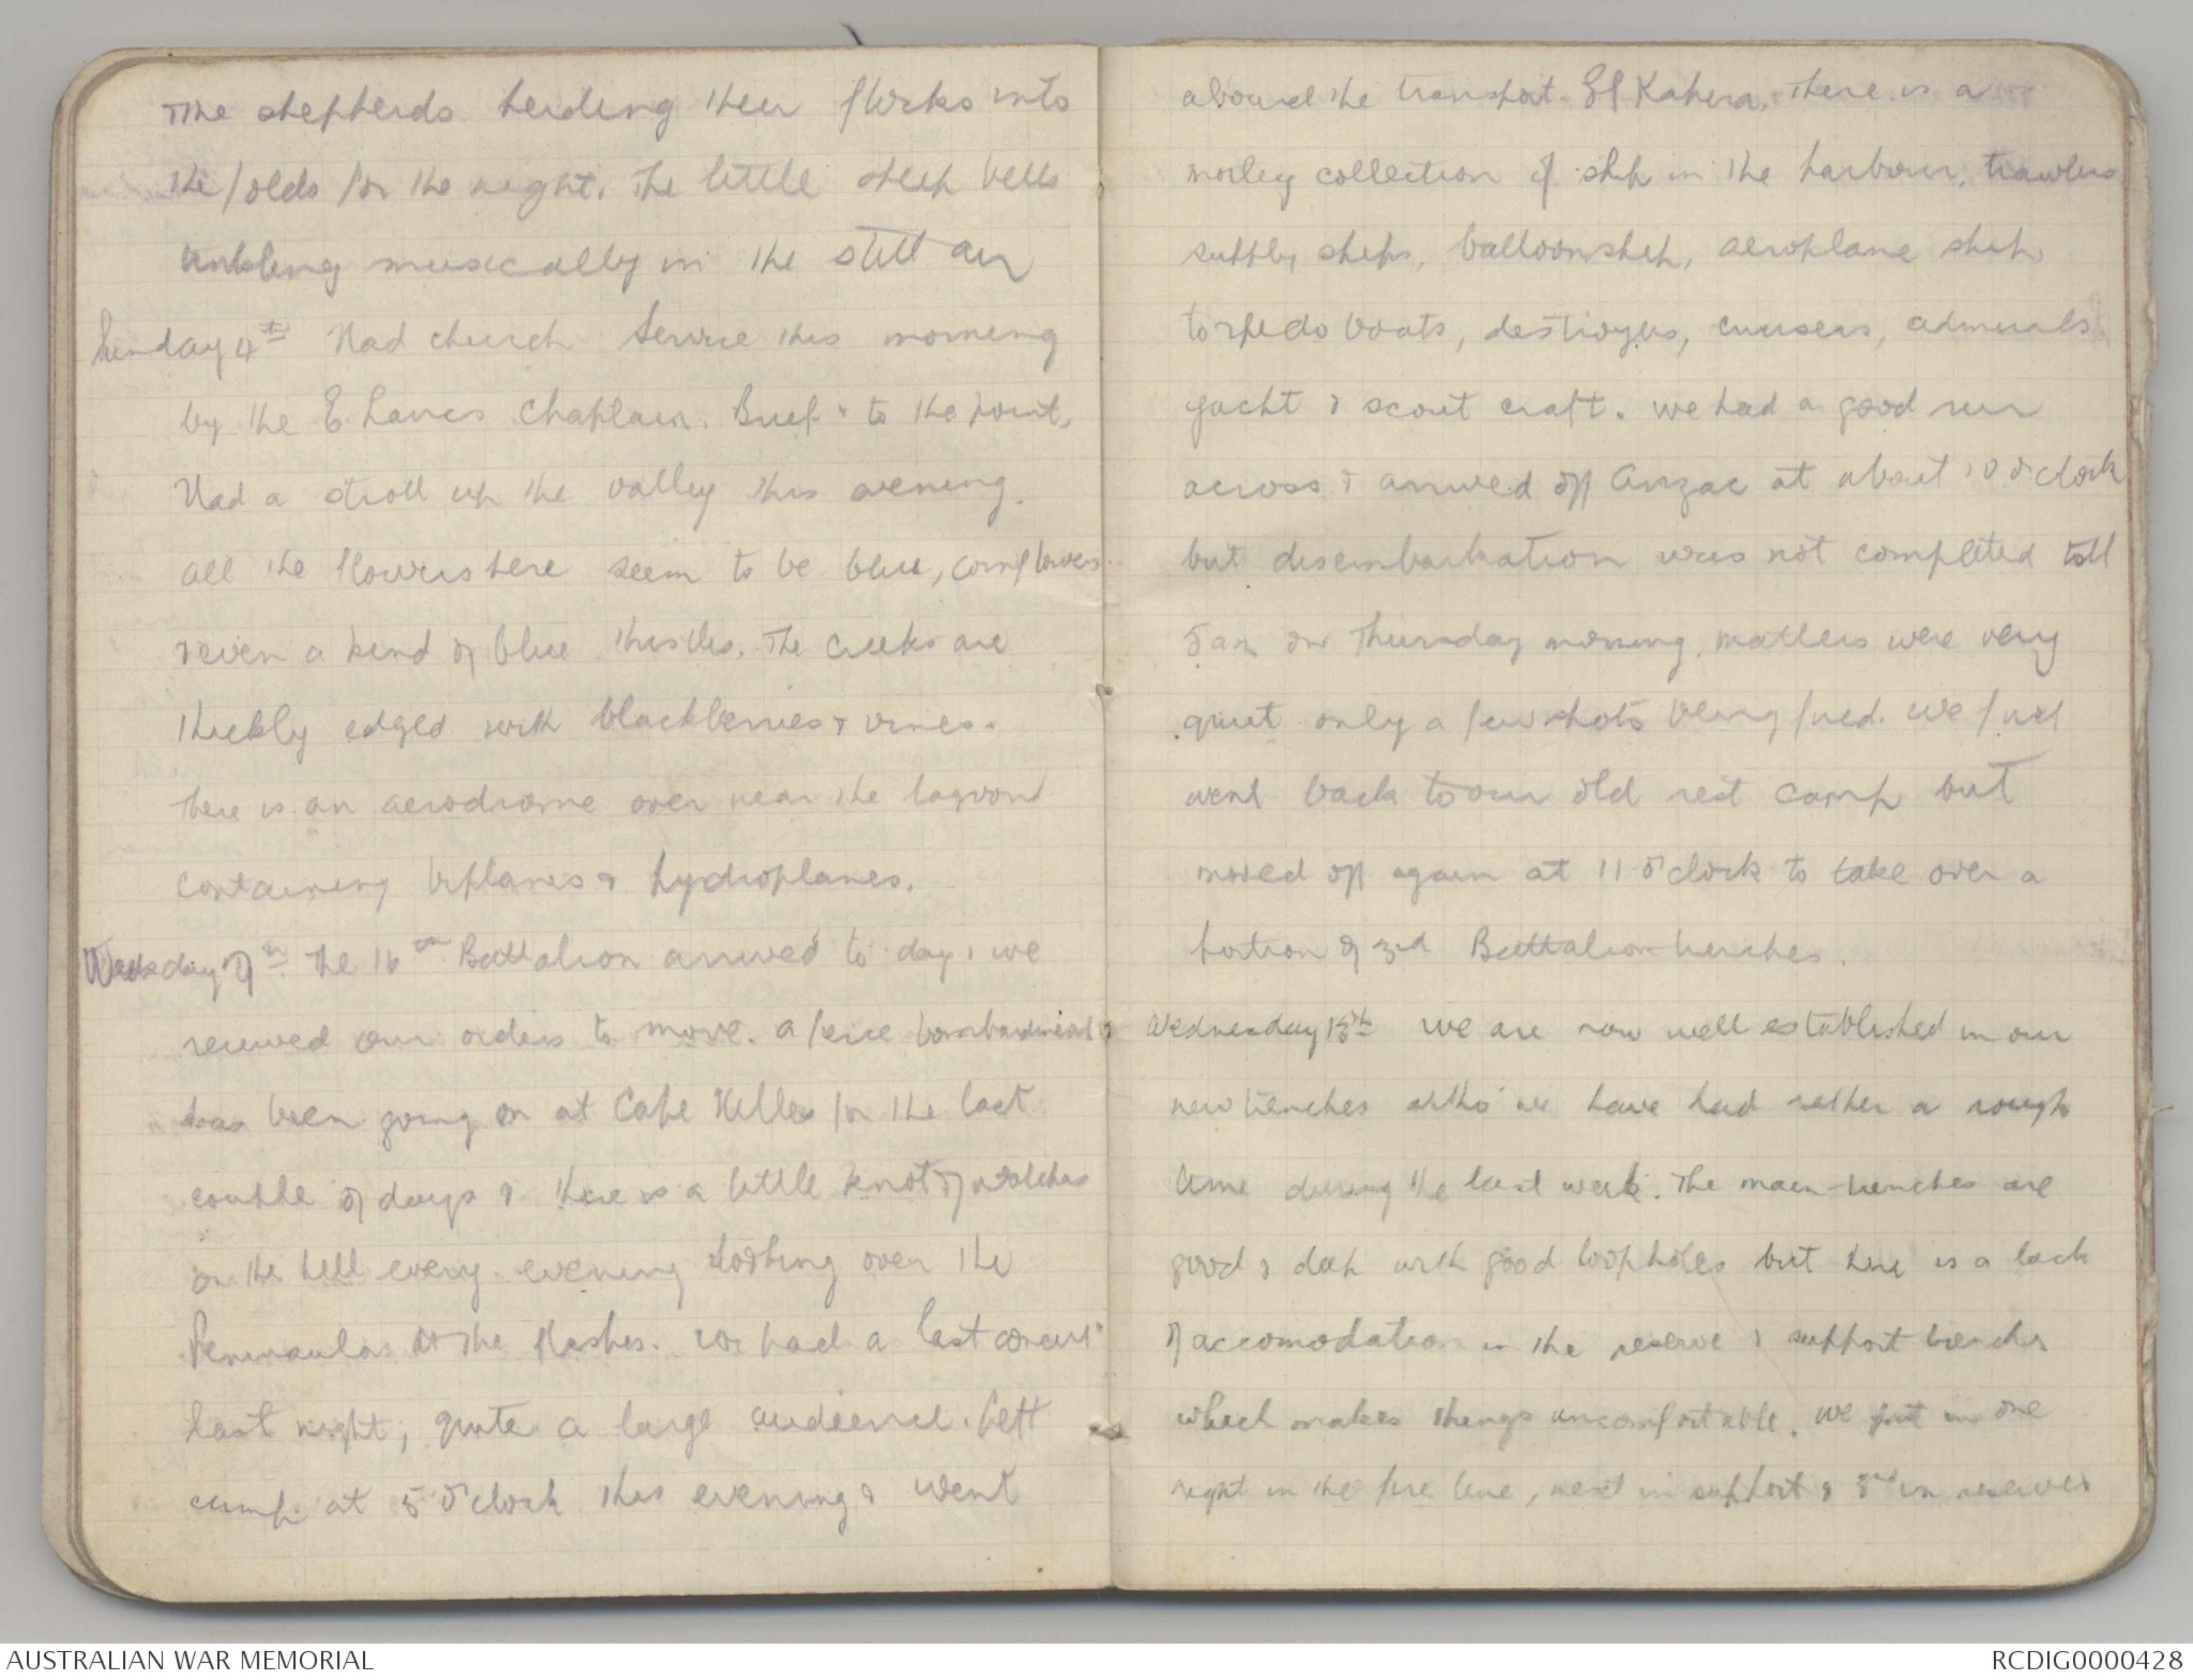 The shepherds herding their flocks into
the folds for the night, The little sheep bells
tinkling musically in the still air
Sunday 4th Had church Service this morning
by the E. Lancs Chaplain. Brief & to the point,
Had a stroll up the valley this evening.
all the flowers here seem to be blue, cornflowers
& even a kind of blue thistles. The creeks are
thickly edged with blackberries & vines.
There is an aerodrome over near the lagoon
containing biplanes & hydroplanes.
7th The 16th Battalion arrived to day, we
received our orders to move. a fierce bombardment
has been going on at Cape Helles for the last
couple of days & there is a little knot of watchers
on the hill every evening looking over the
Peninsula at the flashes. We had a last concert
last night, quite a large audience. Left
camp at 5 O'clock this evening & went
aboard the transport El Kahera, There is a
motley collection of ship in the harbour, trawlers
supply ships, balloonship, aeroplane ship
torpedo boats, destroyers, cruisers, admirals
yacht & scout craft. we had a good run
across & arrived off Anzac at about 10 o'clock
but disembarkation was not completed till
5 am on Thursday morning. matters were very
quiet only a few shots being fired. we first
went back to our old rest camp but
moved off again at 11 O'clock to take over a
portion of 3rd Battalion trenches.
Wednesday 13th we are now well established in our
new trenches altho' we have had rather a rough
time during the last week. The main trenches are
good & deep with good loopholes but there is a lack
of accomodation in the reserve & support trenches
which makes things uncomfortable. We put in one
night in the fire line, next in support & 3rd in reserves
AUSTRALIAN WAR MEMORIAL
RCDIG0000428